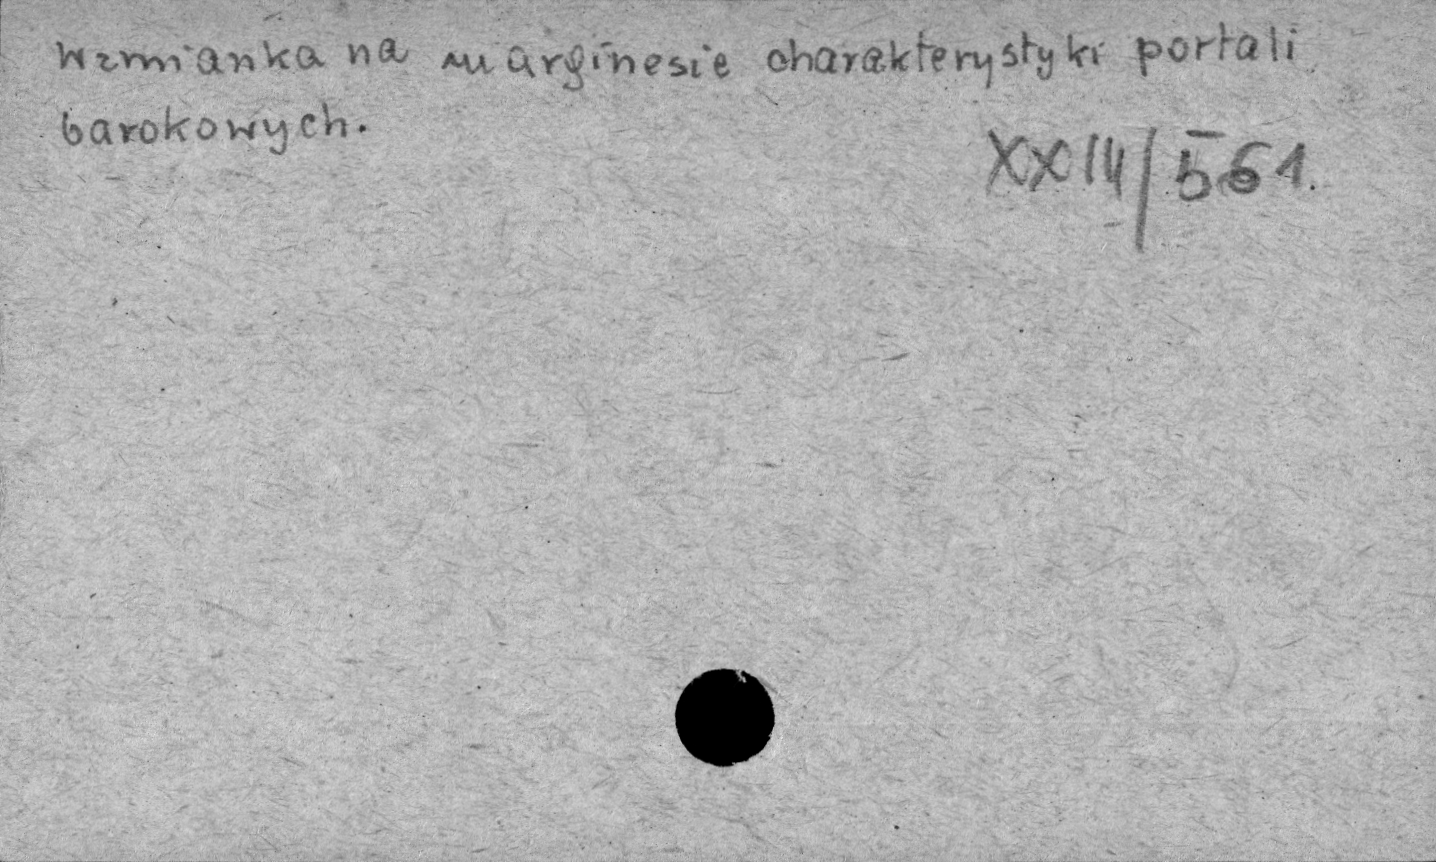 Wzmianka na marginesie charakterystyki portali
barokowych.
XXIV/561.